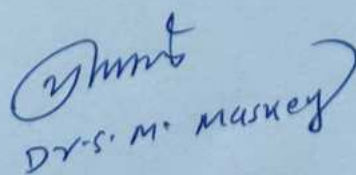 Dr. S. M. Maskey